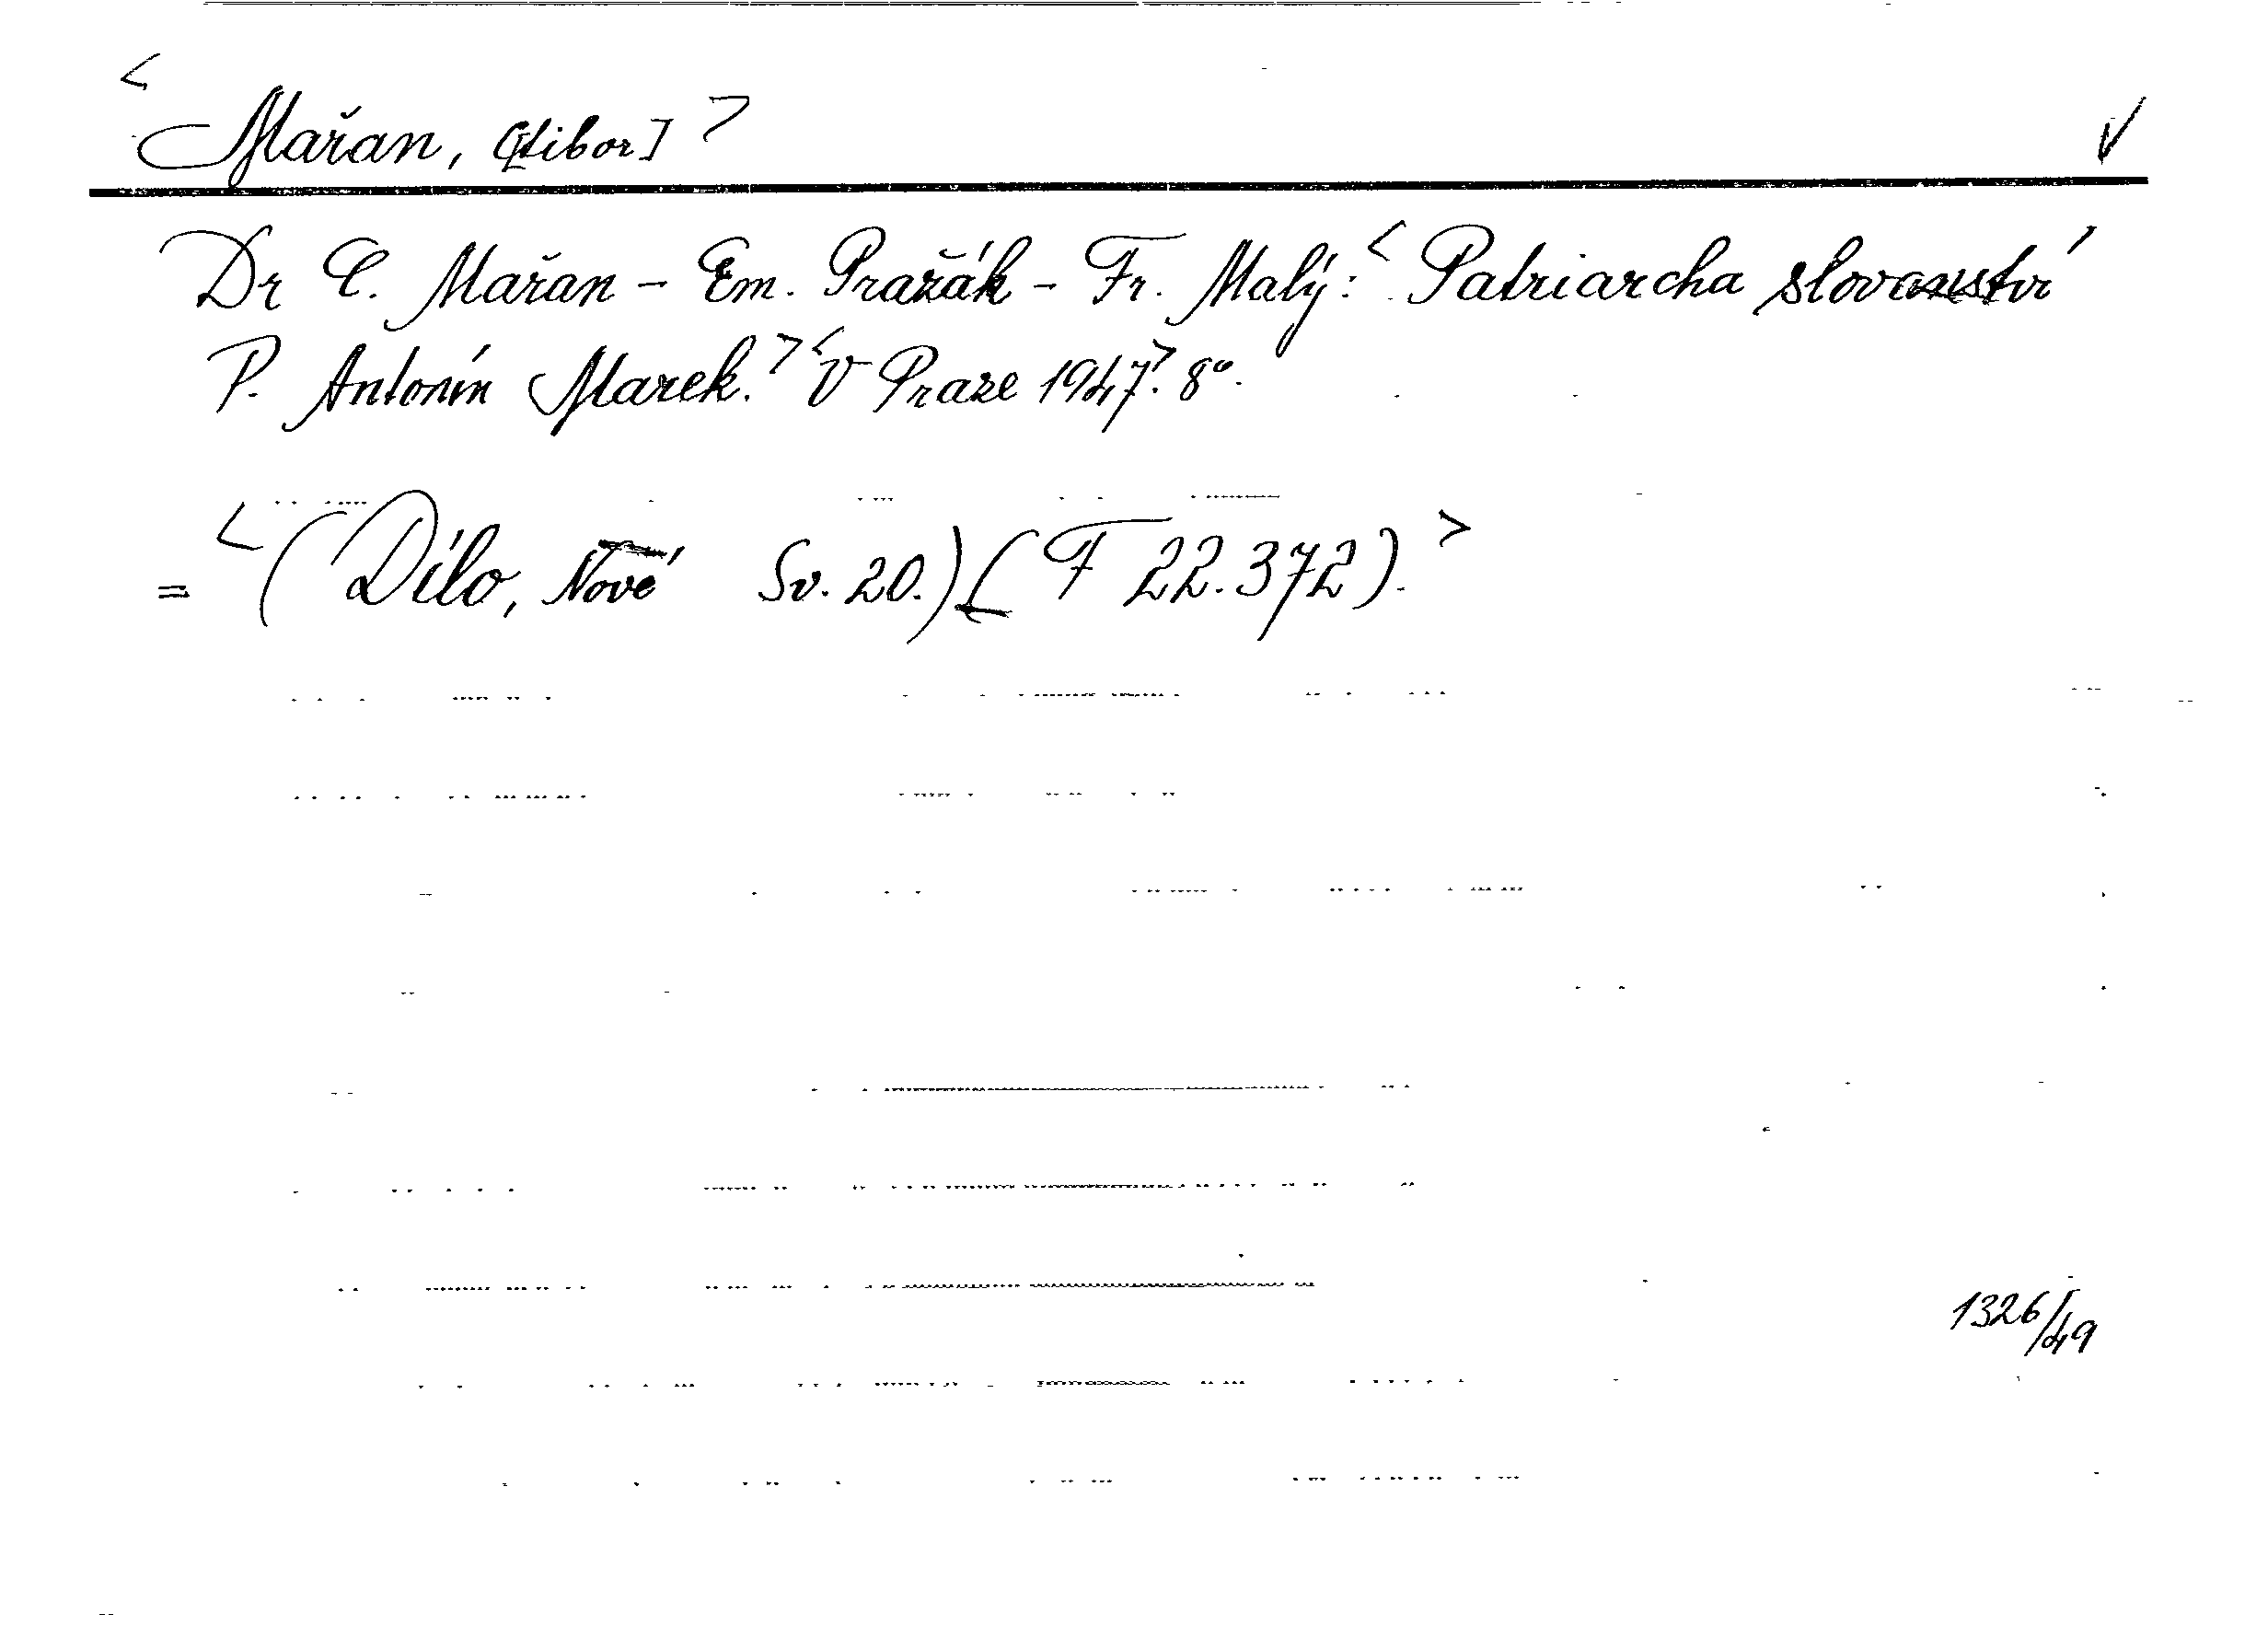 <Mařan, [Ctibor]> V
Dr C. Mařan - Em. Pražák - Fr. Malý: <Patriarcha slovanství
P. Antonín Marek.> <V Praze 1947>. 8°.
= <(Dílo, Nové Sv. 20.) (F 22.372).>
1326/49